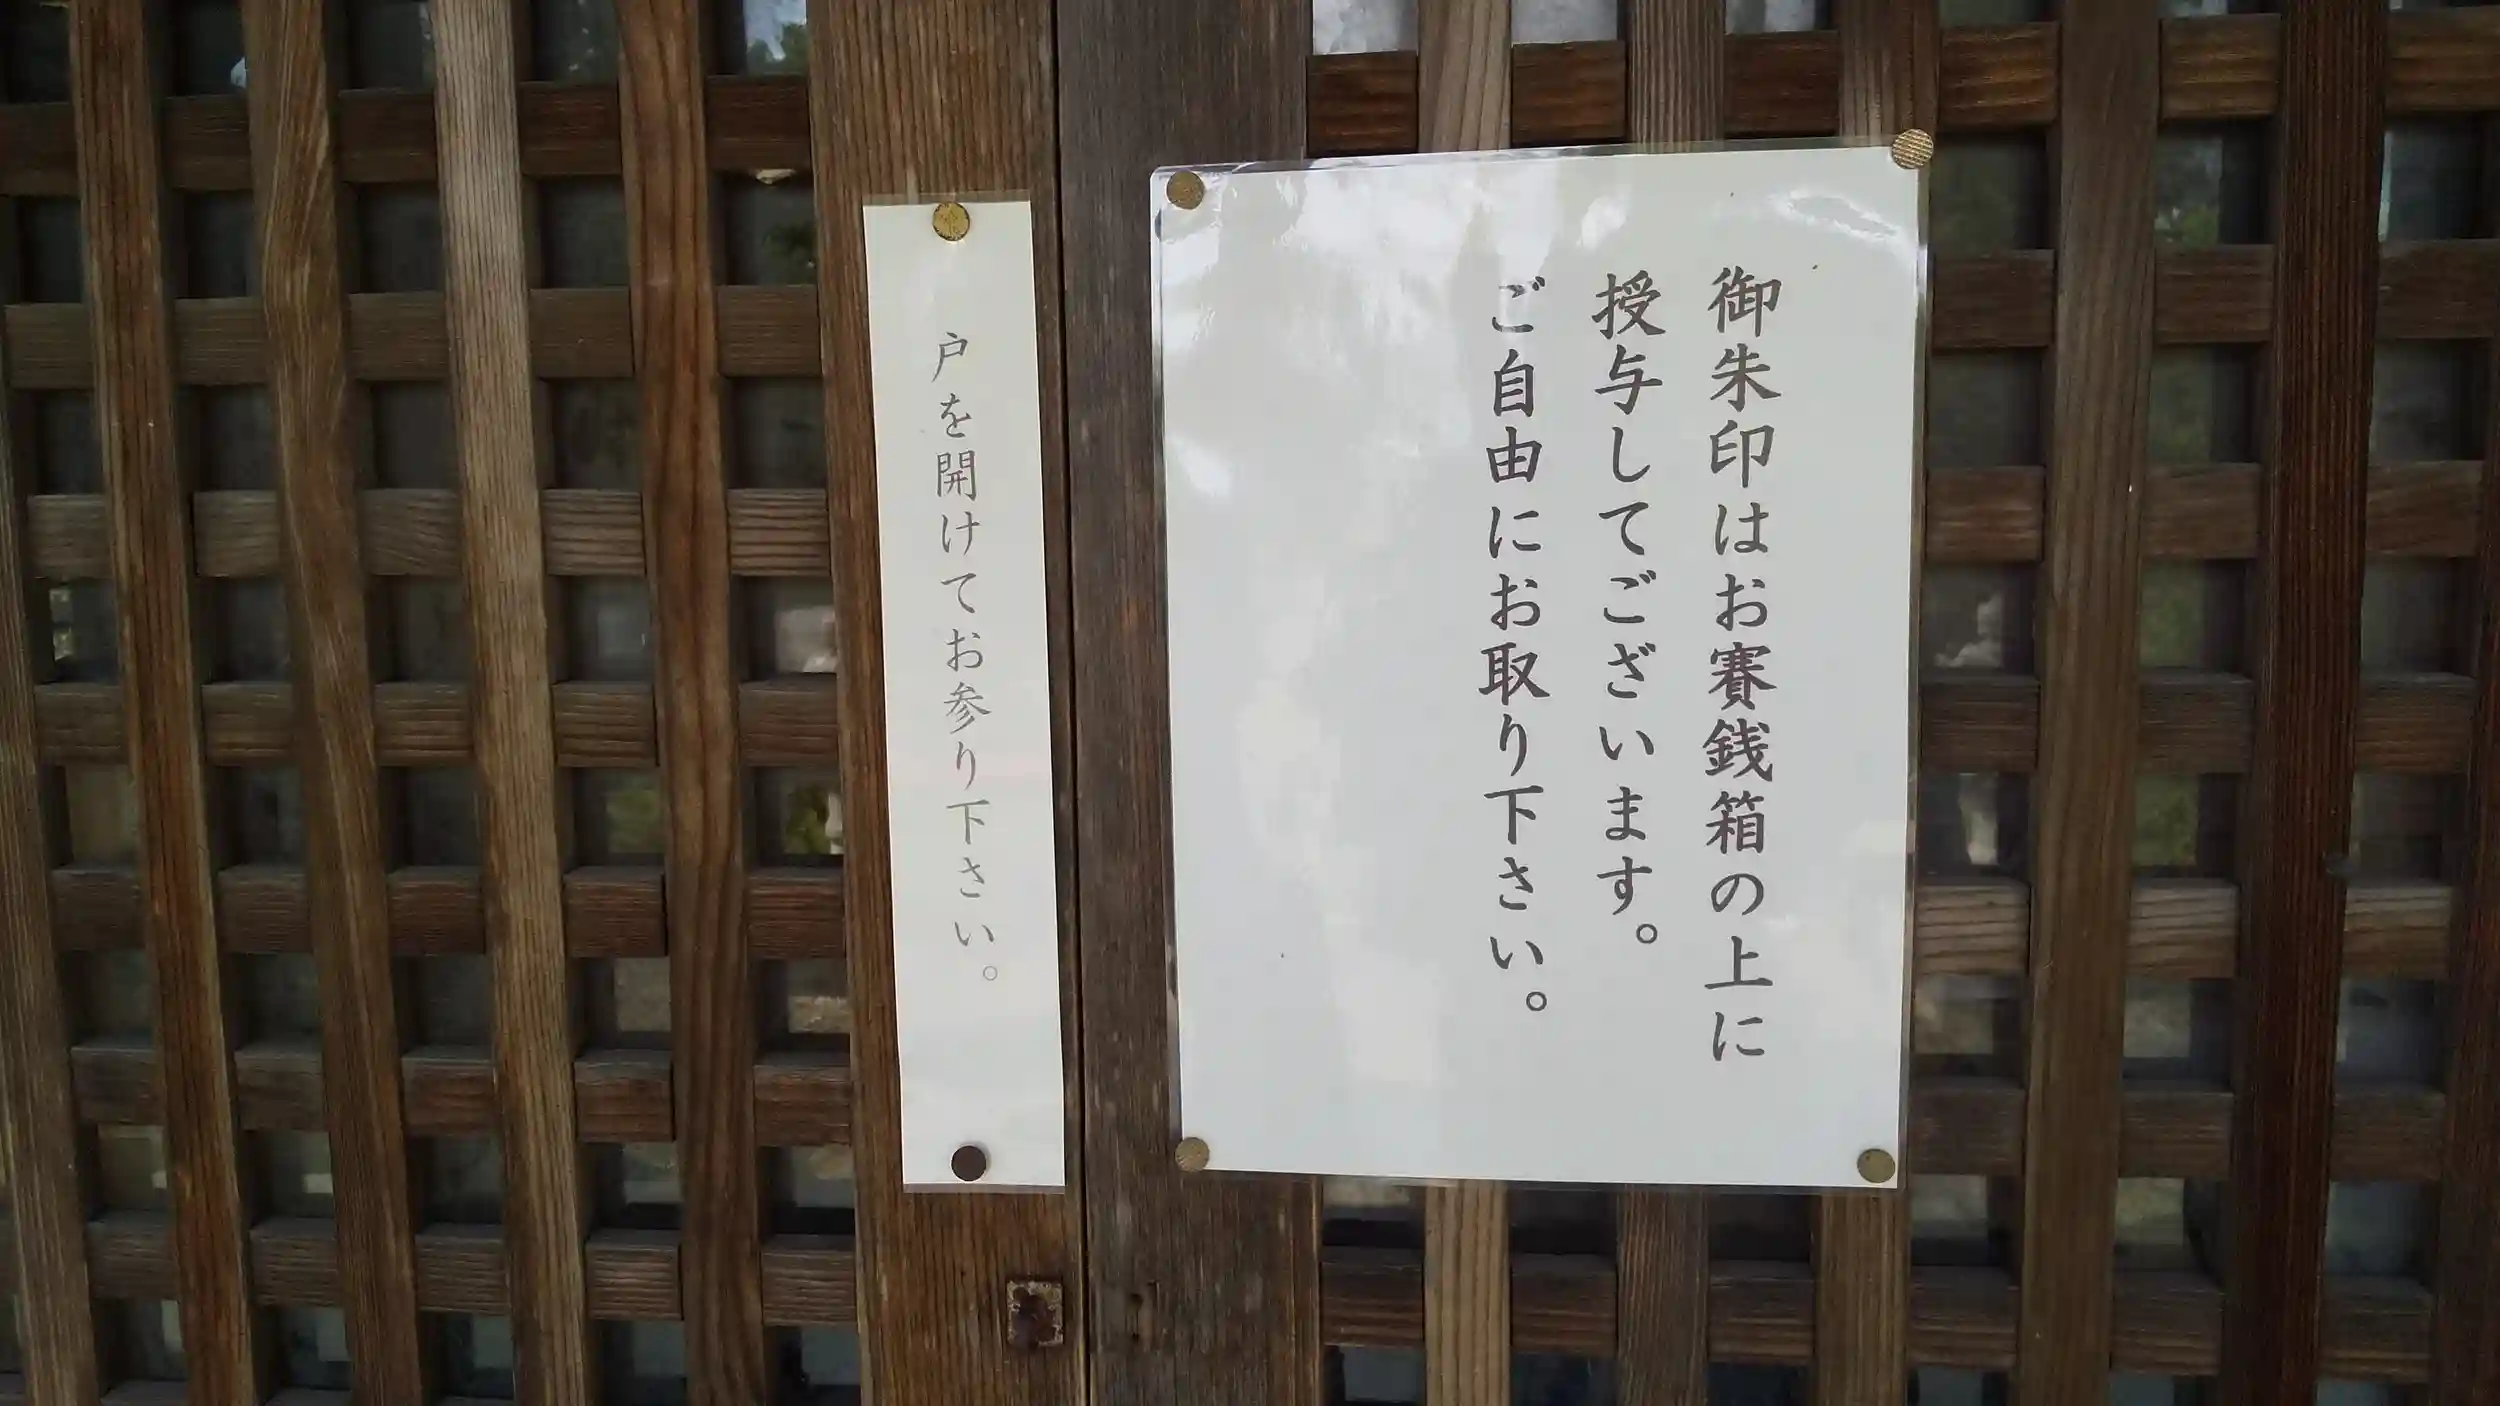 御朱印はお賽銭箱の上に
授与してございます。
ご自由にお取り下さい。
戸を開けてお参り下さい。